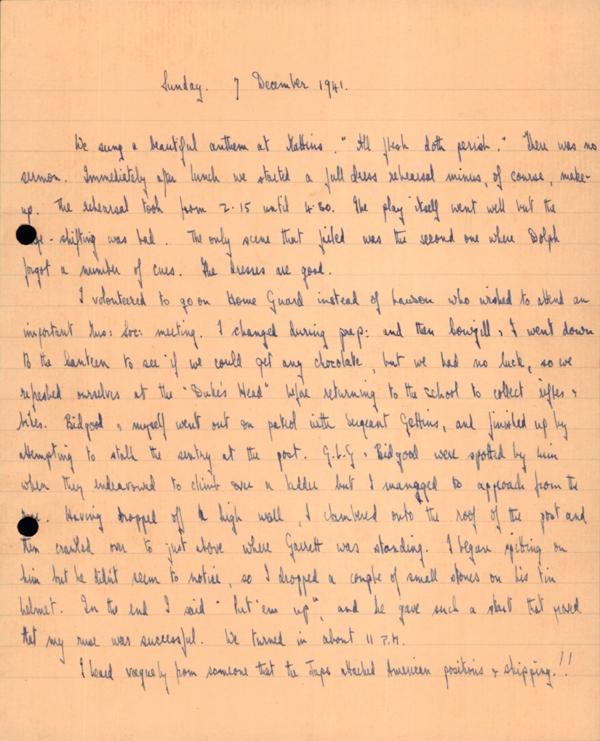 Sunday. 7 December 1941.
We sung a beautiful anthem at Mattins. "All flesh doth perish." There was no
sermon. Immediately after lunch we started a full dress rehearsal minus, of course, make-
up. The rehearsal took from 2.15 until 4.30. The play itself went well but the
- shifting was bad. The only scene that failed was the second one where Dolph
forgot a number of cues. The dresses are good.
I volunteered to go on Home Guard instead of Lawson who wished to attend an
important Mus: Soc: meeting. I changed during prep: and then Cowgill & I went down
to the Canteen to see if we could get any chocolate, but we had no luck, so we
refreshed ourselves at the "Duke's Head" before returning to the School to collect rifles &
bikes. Bidgood & myself went out on patrol with Sergeant Gettins, and finished up by
attempting to stalk the sentry at the post. G.L.G & Bidgood were spotted by him
when they endeavoured to climb over a ladder but I managed to approach from the
. Having dropped off a high wall, I clambered onto the roof of the post and
then crawled over to just above where Garrett was standing. I began spitting on
him but he didn't seem to notice, so I dropped a couple of small stones on his tin
helmet. In the end I said "Put 'em up", and he gave such a start that proved
that my ruse was successful. We turned in about 11 P.M.
I heard vaguely from someone that the Japs attacked American positions & shipping.!!